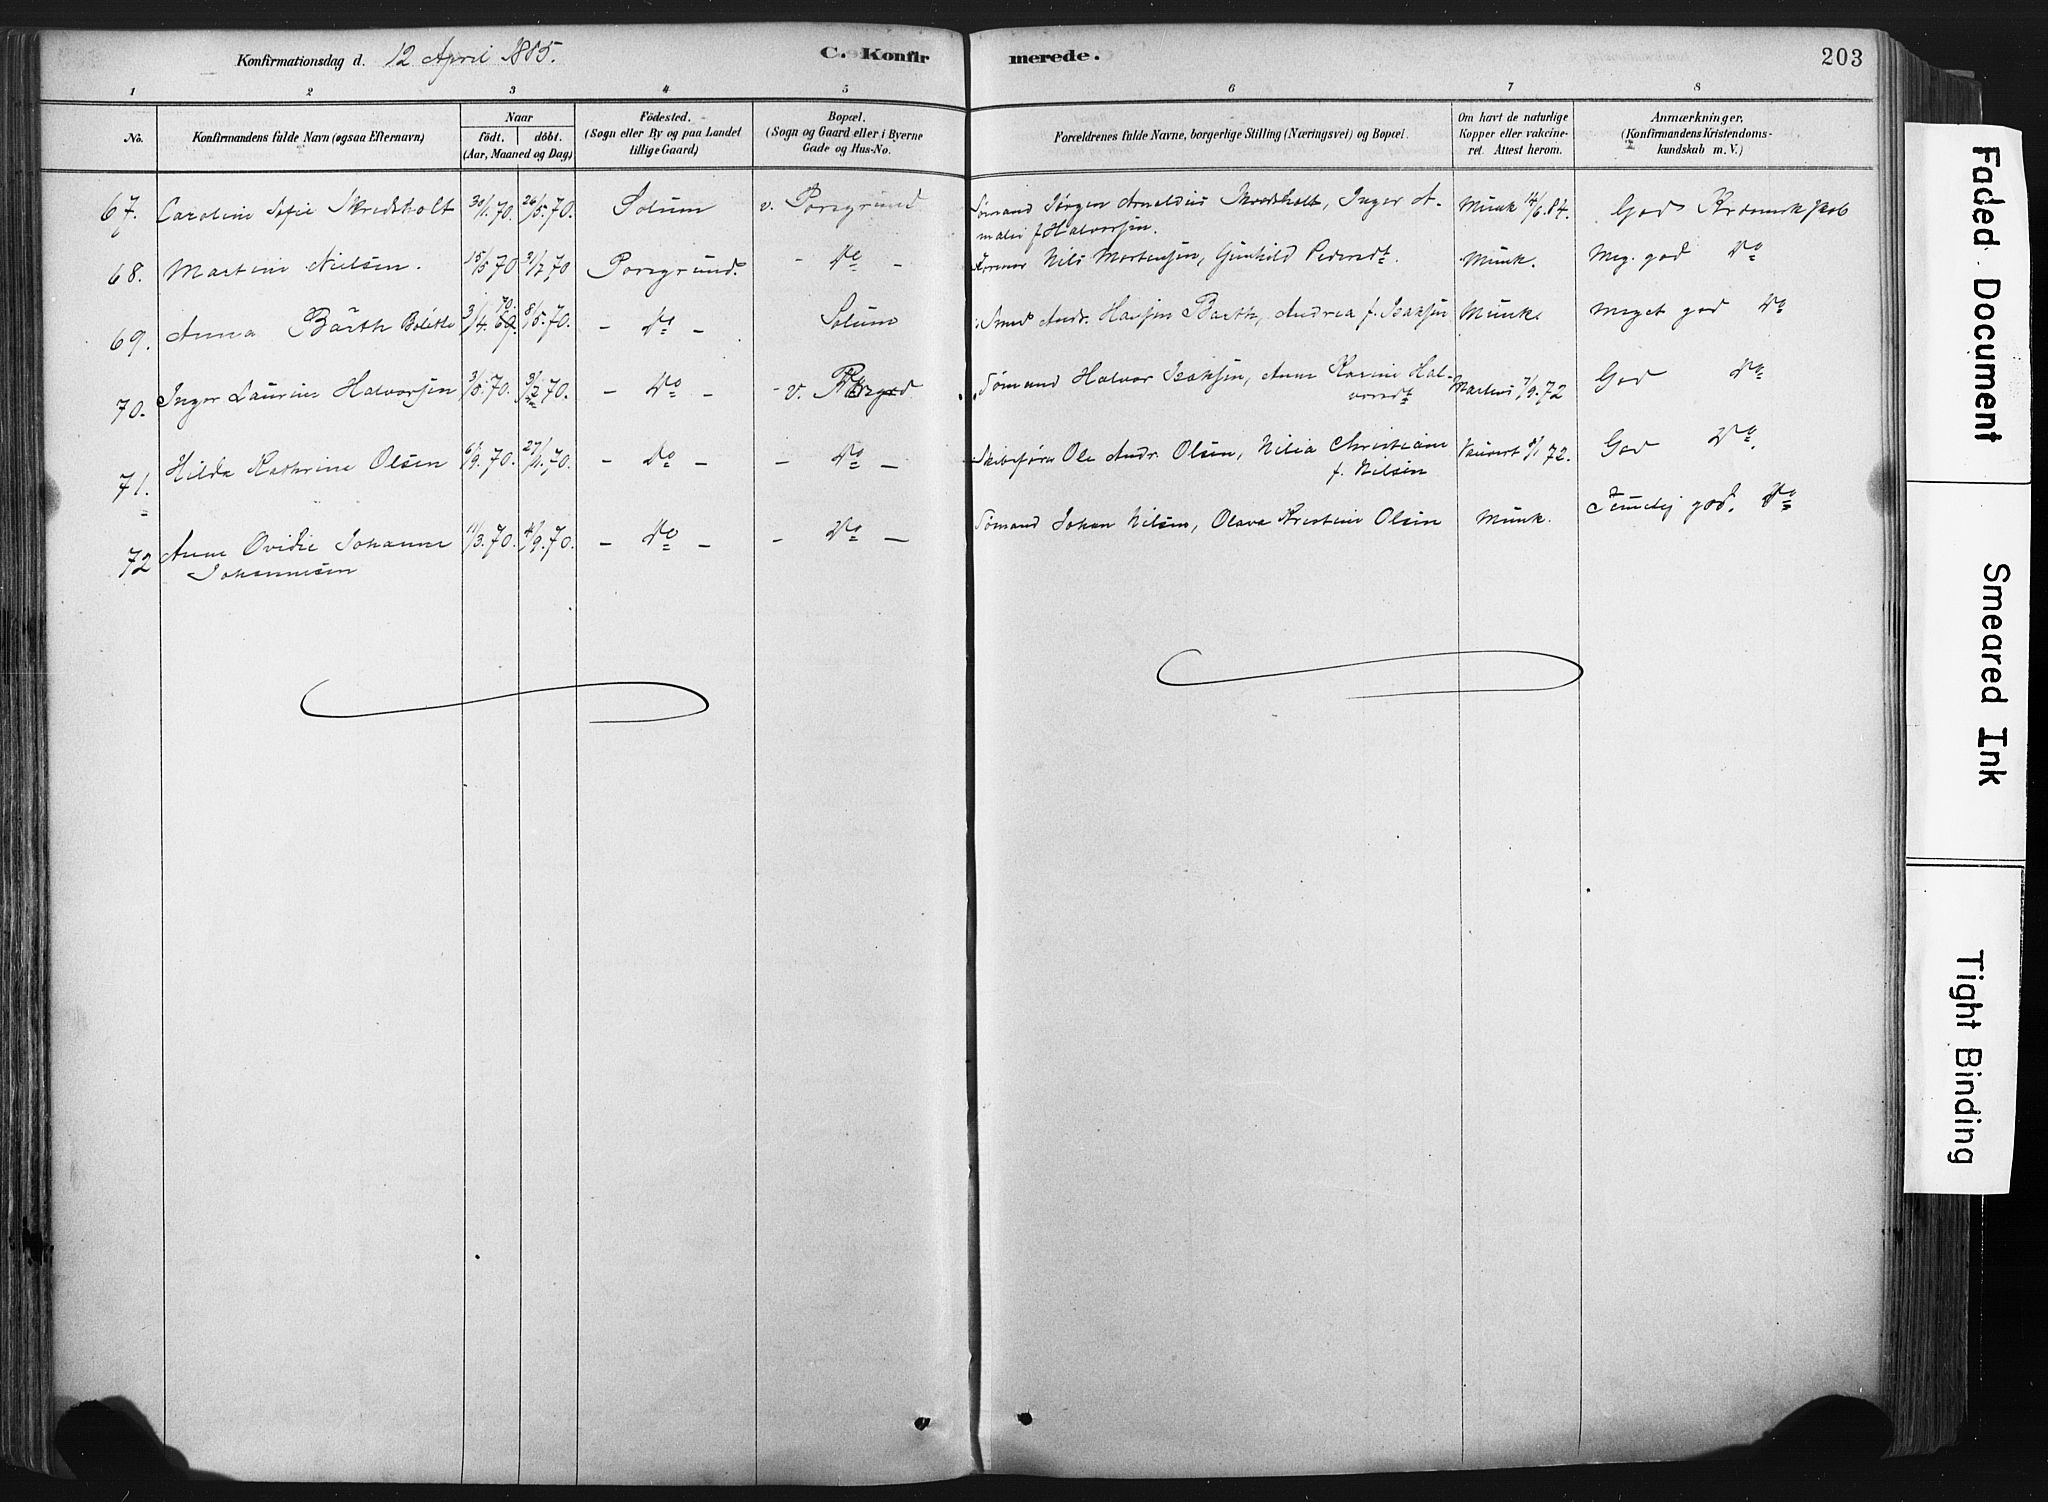 Konfirmationsdag d. 12 April 1885. C. Konfir merede. 203
1 2 3 4 5 6 7 8
No. Konfirmandens fulde Navn (ogsaa Efternavn) Naar Födt. döbt. (Aar, Maaned og Dag) Födested. (Sogn eller By og paa Landet tillige Gaard) Bopæl. (Sogn og Gaard eller i Byerne Gade og Hus-No. Forældrenes fulde Navne, borgerlige Stilling (Næringsvei) og Bopæl. Om havt de naturlige Kopper eller vakcineret. Attest herom. Anmærkninger. (Konfirmandens Kristendomskundskab m. V.)
67. Caroline Sofie Skredsholt 30/1.70. 26/5.70. Solum v. Porsgrund Sømand Jørgen Arneldius Skredsholt, Inger A- Munk 14/6.84. God Kristendskskab
malie f. Halvorsen.
68. Martine Nielsen. 15/5 70 31/7 70 Porsgrund. - Do - Nils Mortensen, Gunhild Pedersdt. Munk. Meg. god Do
69. Anna Barth Bolette 3/4.69. 70. 8/5.70. - Do - Solum Smed Andr. Hansen Barth, Andrea f. Isaksen Munk. Meget god Do
70. Inger Laurine Halvorsen 3/5.70. 3/7.70. - Do - - v. Porsgrd Sømand Halvor Isaksen, Anne Karine Hal- 7/9.72 God Do
vorsdt
71. Hilda Kathrine Olsen 6/9.70. 27/11.70. - Do - - Do - Skibsfører Ole Andr. Olsen, Nilia Christiane Vauvert 8/1 72. God Do.
f. Nilsen
72 Anne Ovidie Johanne 11/3.70. 4/9.70. - Do - - Do - Sømand Johan Nilsen, Olava Kristine Olsen Munk. Temelig god. Do
Johannesen
Faded Document
Smeared Ink
Tight Binding